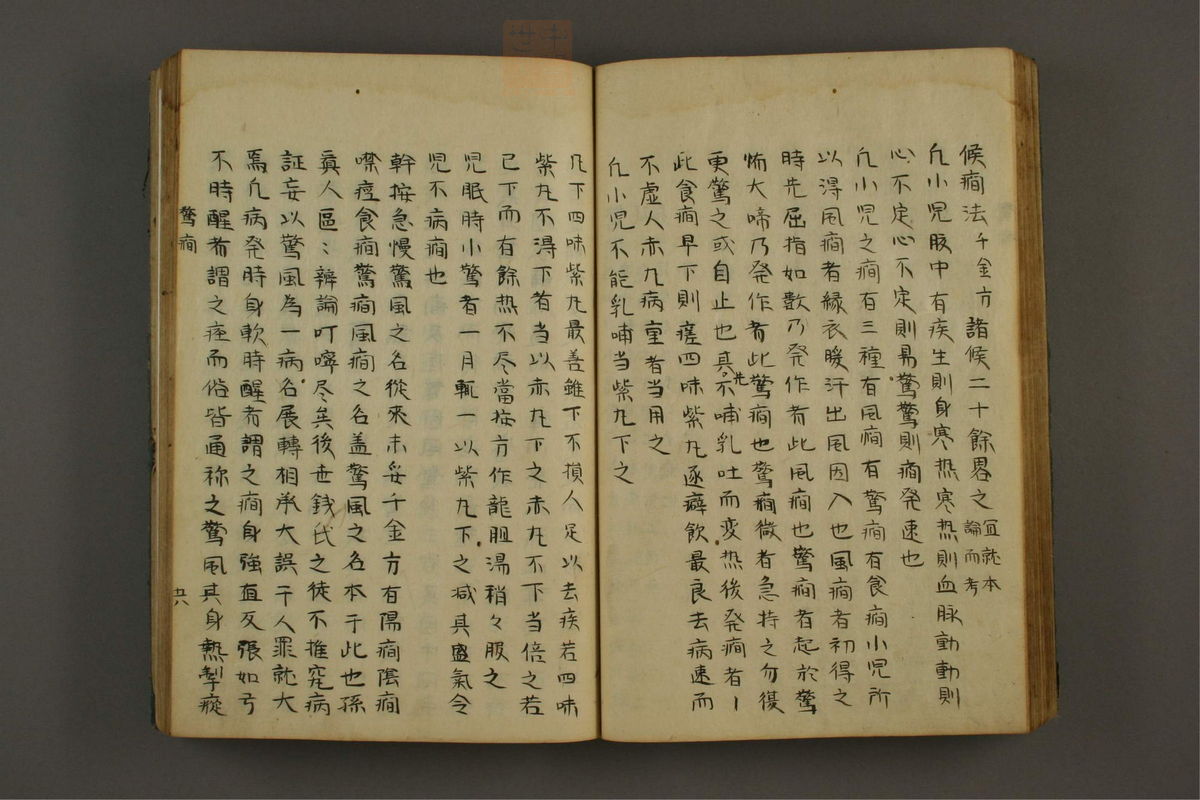 候癇法千金方　諸候二十餘畧之宜就本論而考
凢小児腹中有疾生則身寒热寒热則血脉動動則
心不定心不定則易驚驚則癇発速也
凢小児之癇有三種有風癇有驚癇有食癇小児所
以得風癇者縁衣暖汗出風因入也風癇者初得之
時先屈指如数乃発作者此风癇也驚癇者起於驚
怖大啼乃発作者此驚癇也驚癇微者急持之勿復
更驚之或自止也其先不哺乳吐而变热後発癇者
此食癇早下則瘥四味紫丸逐癖飲最良去病速而
不虚人赤丸病重者当用之
凢小児不能乳哺当紫丸下之
凡下四味紫丸最善雖下不損人足以去疾若四味
紫丸不得下者当以赤丸下之赤丸不下当倍之若
已下而有餘热不尽當按方作龍胆湯稍々服之
児眠時小驚者一月輒一以紫丸下之减其盛氣令
児不病癇也
幹按急慢驚风之名從來未妥千金方有陽癇陰癇
噤痙食癇驚癇風癇之名盖驚风之名本于此也孫
真人區〻辨論叮嚀尽矣後世銭氏之徒不推究病
証妄以驚风為一病名展轉相承大誤于人罪就大
焉凢病発時身軟時醒者謂之癇身強直反張如弓
不時醒者謂之痓而俗皆通称之驚风其身熱掣瘲
驚癇
六